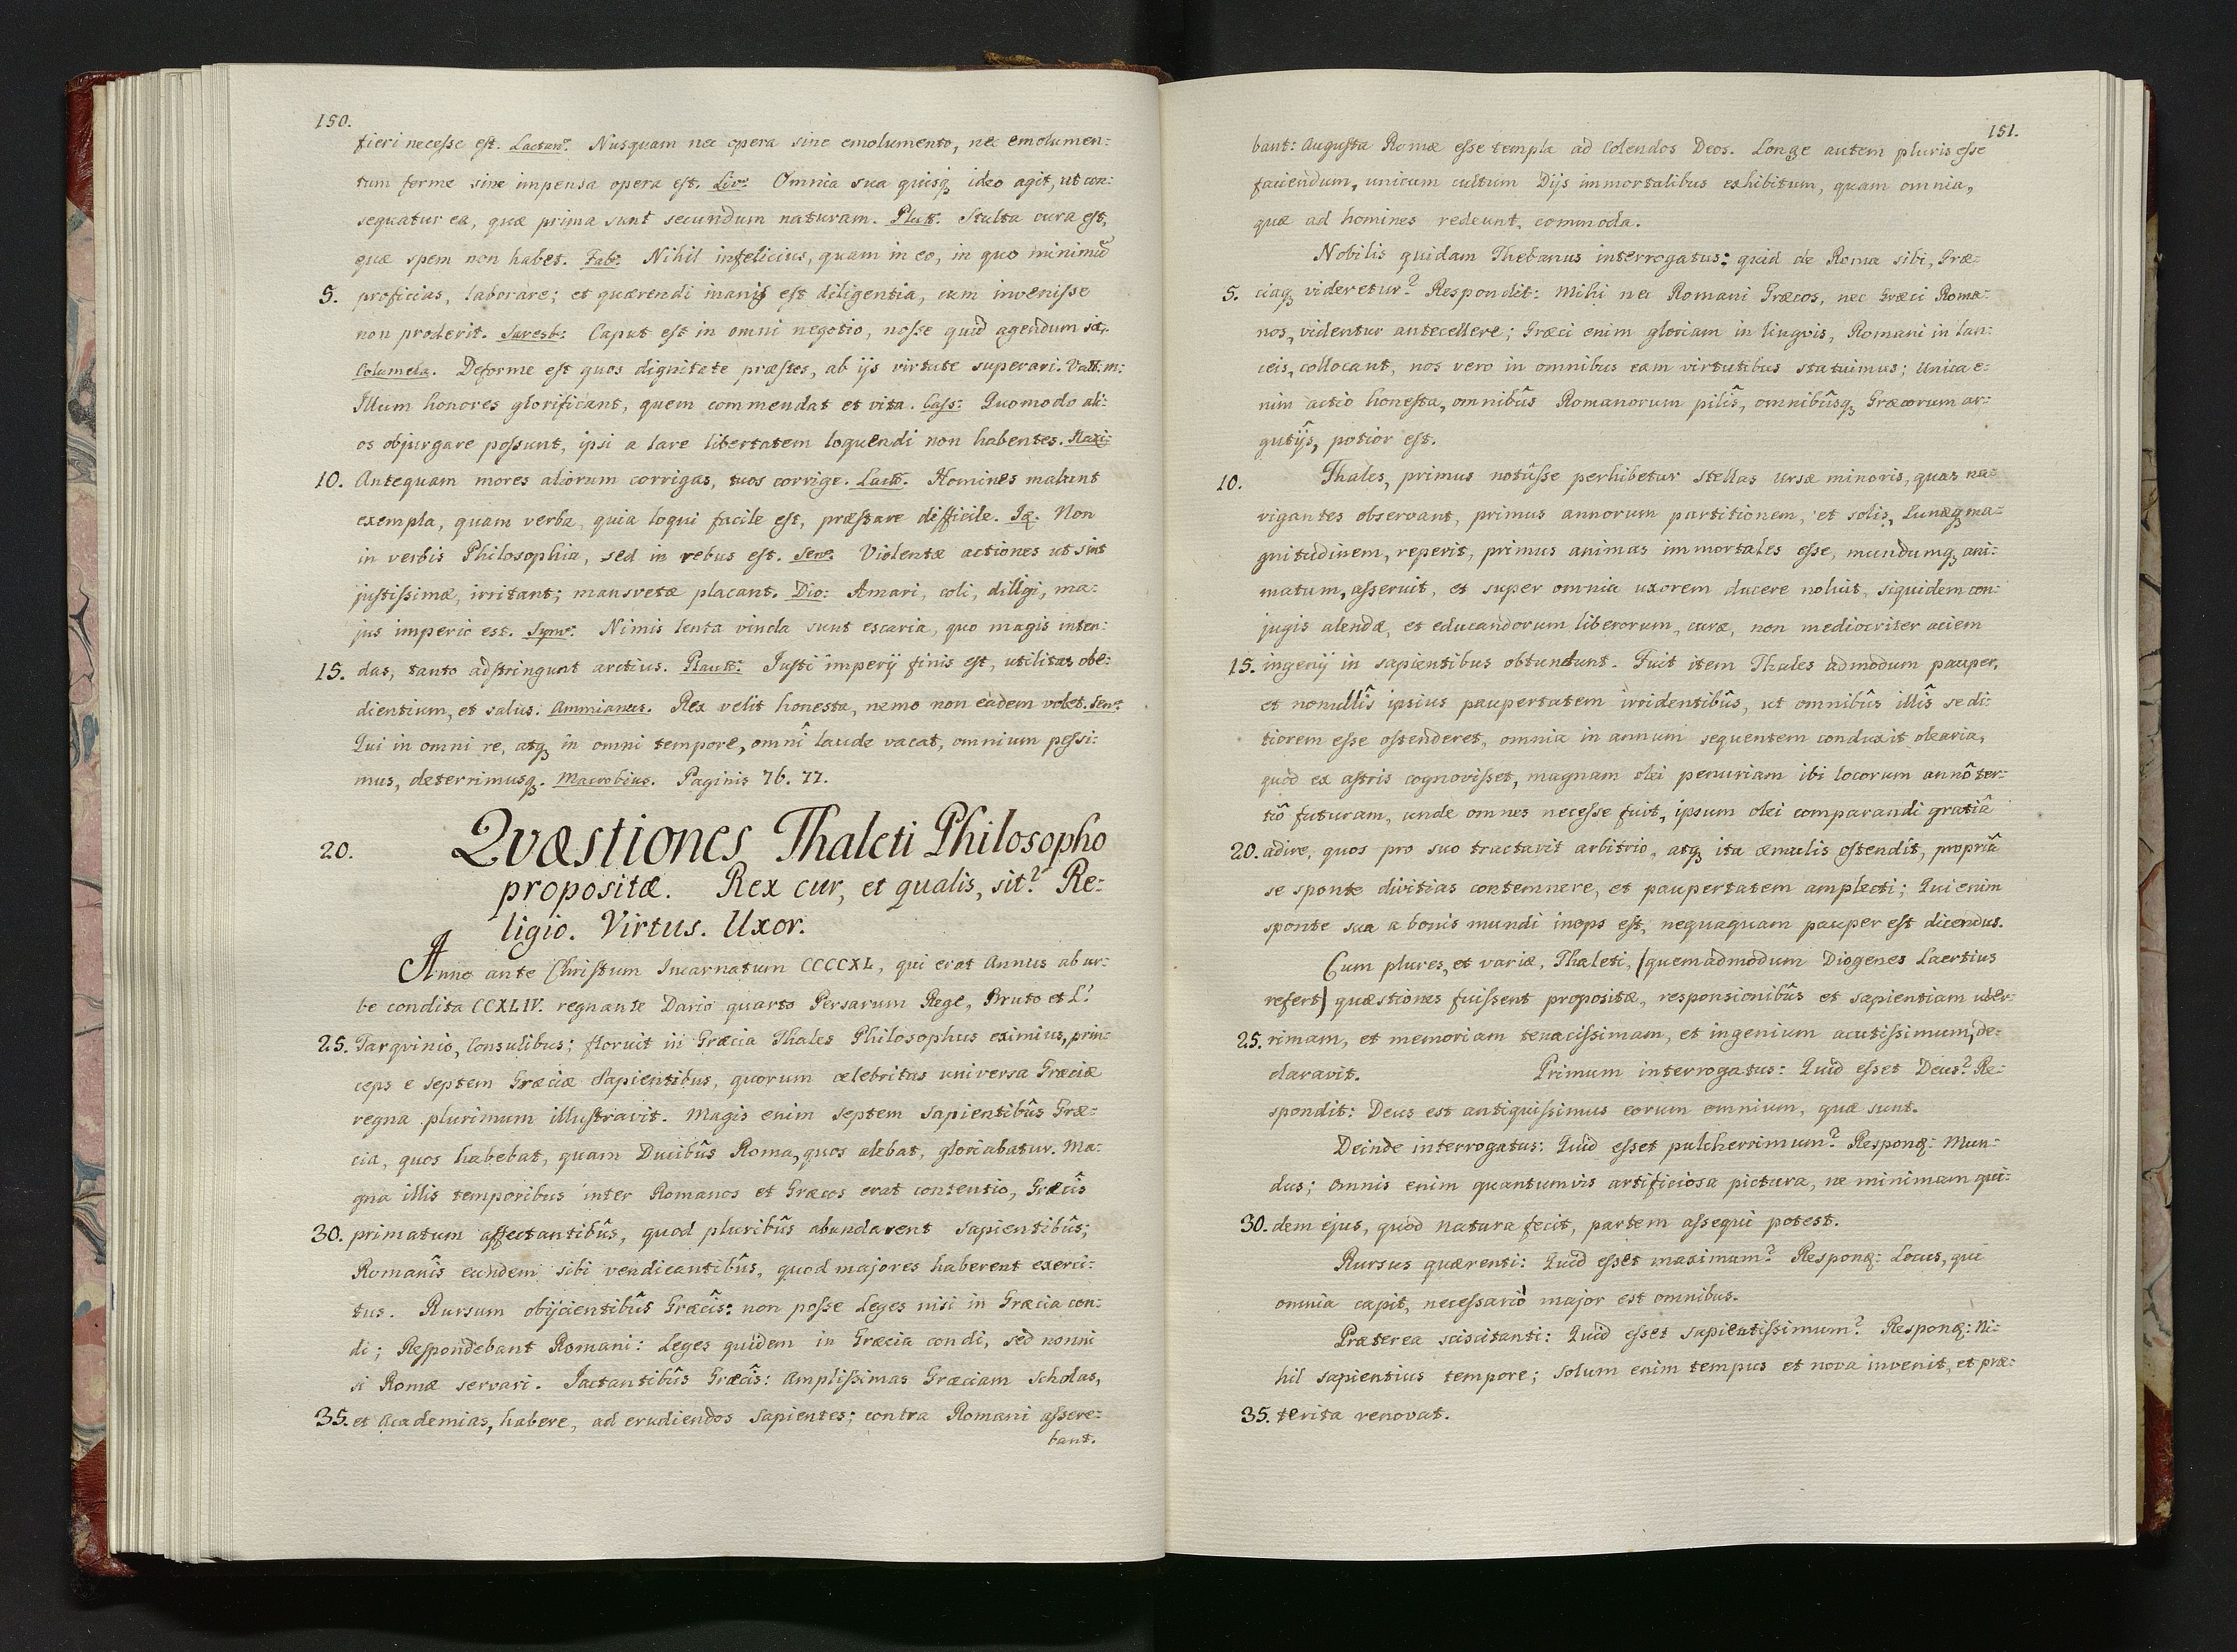 150.
fieri necesse est. Lactan: Nusquam nec opera sine emolumento, nec emolumen:
tum ferme sine impensa opera est. Liv: Omnia sua quisq; ideo agit, ut con:
sequatur ea, quæ prima sunt secundum naturam. Plut: Stulta cura est,
quæ spem non habet. Fab: Nihil infelicius, quam in eo, in quo minimũ
5. proficias, laborare; et quærendi inanis est diligentia, cum invenisse
non proderit. Saresb: Caput est in omni negotio, nosse quid agendum sit.
Columela. Deforme est quos dignitate præstes, ab ijs virtute superari. Vall. m:
Illum honores glorificant, quem commendat et vita. Cass: Quomodo ali:
os objurgare possunt, ipsi a lare libertatem loquendi non habentes. Maxi:
10. Antequam mores aliorum corrigas, tuos corrige. Lact: Homines malunt
exempla, quam verba, quia loqui facile est, præstare difficile. Iq. Non
in verbis Philosophia, sed in rebus est. Sene: Violentæ actiones ut sint
justissimæ, irritant; mansvetæ placant. Dio: Amari, coli, diligi, ma:
jus imperio est. Sym: Nimis lenta vincla sunt escaria, quo magis inten:
15. das, tanto adstringunt arctius. Plaut: Justi imperij finis est, utilitas obe:
dientium, et salus. Ammianus. Rex velit honesta, nemo non eadem volet. Sen:
Qui in omni re, atq; in omni tempore, omni laude vacat, omnium pessi:
mus, deterrimusq;. Macrobius. Paginis 76. 77.
20. Qvæstiones Thaleti Philosopho
propositæ. Rex cur, et qualis, sit? Re:
ligio. Virtus. Uxor.
Anno ante Christum Incarnatum CCCCXL, qui erat Annus ab ur:
be condita CCXLIV. regnante Dario quarto Persarum Rege, Bruto et L:
25. Tarqvinio, Consulibus; floruit in Græcia Thales Philosophus eximius, prin:
ceps e septem Græciæ Sapientibus, quorum celebritas universa Græciæ
regna plurimum illustravit. Magis enim septem Sapientibûs Græ:
cia, quos habebat, quam Ducibûs Roma, quos alebat, gloriabatur. Ma:
gna illis temporibus inter Romanos et Græcos erat contentio, Græcîs
30. primatum affectantibûs, quod pluribûs abundarent sapientibûs;
Romanîs eundem sibi vendicantibûs, quod majores haberent exerci:
tus. Rursum obijcientibûs Græcîs: non posse Leges nisi in Græcia con:
di; Respondebant Romani: Leges quidem in Græcia condi, sed nonni
si Romæ servari. Jactantibûs Græcîs: Amplissimas Græciam Scholas,
35. et Academias, habere, ad erudiendos Sapientes; contra Romani assere:
bant.
151.
bant: Augusta Romæ esse templa ad Colendos Deos. Longe autem pluris esse
faciendum, unicum cultum Dijs immortalibus exhibitum, quam omnia,
quæ ad homines redeunt, commoda.
Nobilis quidam Thebanus interrogatus: quid de Roma sibi, Græ:
5. ciaq; videretur? Respondit: Mihi nec Romani Græcos, nec Græci Roma:
nos, videntur antecellere; Græci enim gloriam in lingvis, Romani in lan:
ceis, collocant, nos vero in omnibus eam virtutibus statuimus; Unica e:
nim actio honesta, omnibûs Romanorum pilîs, omnibûsq; Græcorum ar:
gutijs, potior est.
10. Thales, primus notâsse perhibetur stellas ursæ minoris, quas na:
vigantes observant, primus annorum partitionem, et solis, Lunæq; ma:
gnitudinem, reperit, primus animas immortales esse, mundumq; ani:
matum, asseruit, et super omnia uxorem ducere noluit, siquidem con:
jugis alendæ, et educandorum liberorum, curæ, non mediocriter aciem
15. ingenij in sapientibus obtundunt. Fuit item Thales admodum pauper,
et nonnullîs ipsius paupertatem irridentibûs, ut omnibûs illîs se di:
tiorem esse ostenderet, omnia in annum sequentem conduxit olearia,
quòd ex astris cognovisset, magnam olei penuriam ibi locorum annô ter:
tiô futuram, unde omnes necesse fuit, ipsum olei comparandi gratiâ
20. adire, quos pro suo tractavit arbitrio, atq; ita æmulis ostendit, propriâ
se sponte divitias contemnere, et paupertatem amplecti; Qui enim
sponte sua a bonis mundi inops est, nequaquam pauper est dicendus.
Cum plures, et variæ, Thaleti, (quemadmodum Diogenes Laertius
refert) quæstiones fuissent propositæ, responsionibûs et sapientiam uber:
25. rimam, et memoriam tenacissimam, et ingenium acutissimum, de:
claravit. Primum interrogatus: Quid esset Deus? Re:
spondit: Deus est antiquissimus eorum omnium, quæ sunt.
Deinde interrogatus: Quid esset pulcherrimum? Respond: Mun:
dus; omnis enim quantumvis artificiosa pictura, ne minimam qui:
30. dem ejus, quod Natura fecit, partem assequi potest.
Rursus quærenti: Quid esset maximum? Respond: Locus, qui
omnia capit, necessariò major est omnibus.
Præterea sciscitanti: Quid esset sapientissimum? Respond: Ni:
hil sapientius tempore; Solum enim tempus et nova invenit, et præ:
35. terita renovat.